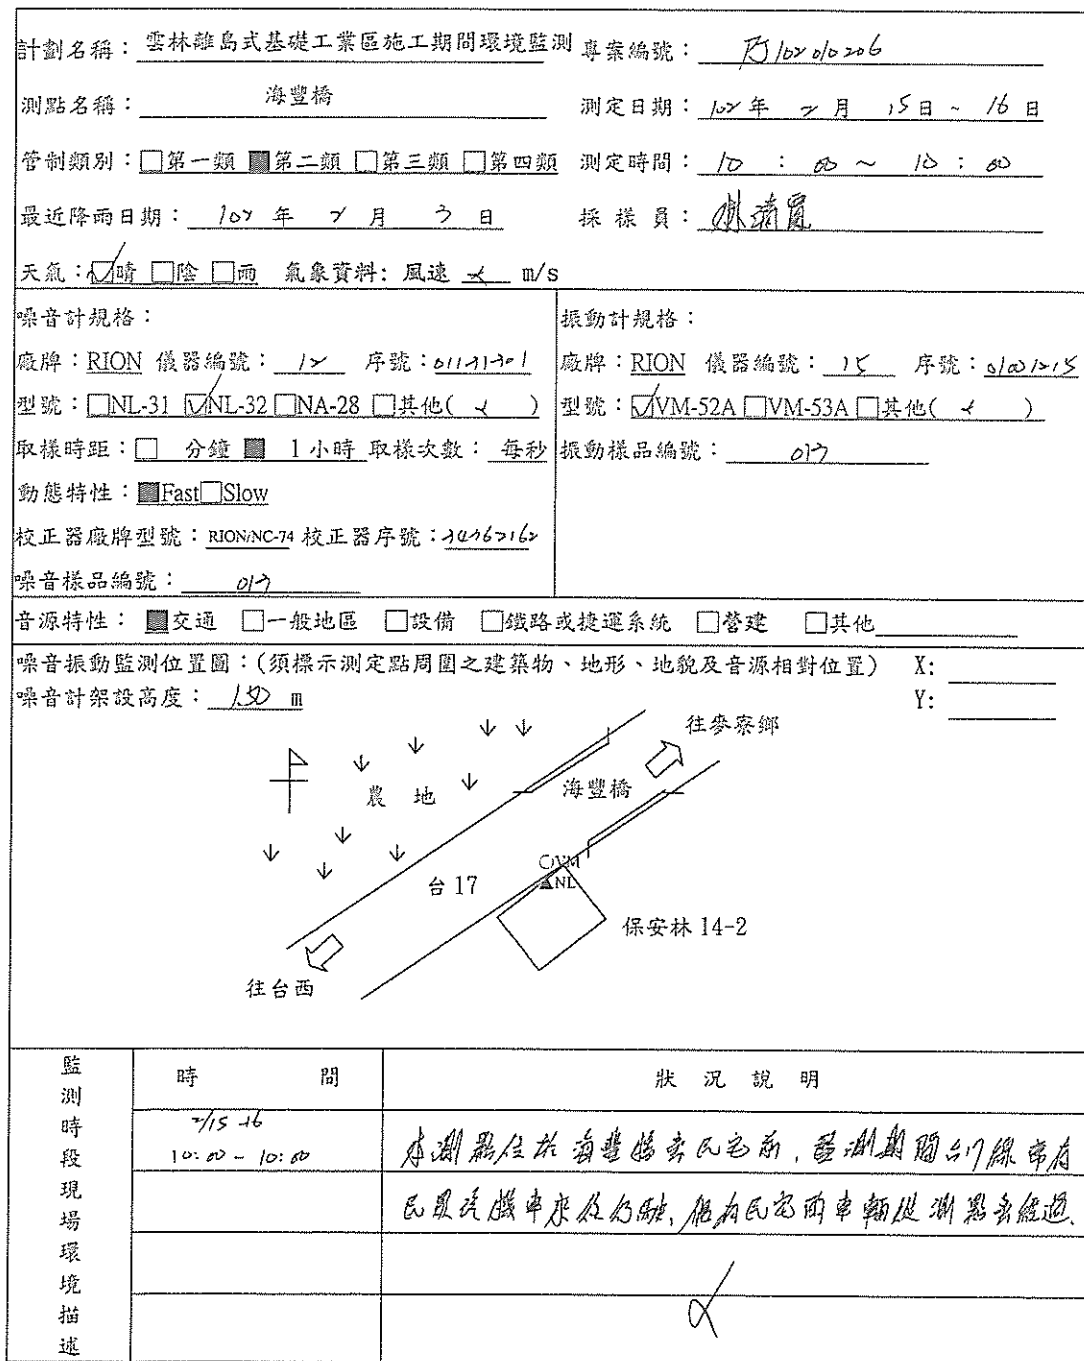 計劃名稱：雲林離島式基礎工業區施工期間環境監測 專案編號：
測點名稱：海豐橋 測定日期：102年 2月 15日 ~ 16日
管制類別：□第一類 ■第二類 □第三類 □第四類 測定時間：10 : 00 ~ 10 : 00
最近降雨日期：102 年 2 月 3 日 採 樣 員：
天氣：☑晴 □陰 □雨 氣象資料: 風速 m/s
噪音計規格：
廠牌：RION 儀器編號：12 序號：
型號：□NL-31 ☑NL-32 □NA-28 □其他( )
取樣時距：□ 分鐘 ■ 1 小時 取樣次數： 每秒
動態特性：■Fast□Slow
校正器廠牌型號：RION/NC-74 校正器序號：
噪音樣品編號：
振動計規格：
廠牌：RION 儀器編號：15 序號：
型號：☑VM-52A □VM-53A □其他( )
振動樣品編號：
音源特性： ■交通 □一般地區 □設備 □鐵路或捷運系統 □營建 □其他
噪音振動監測位置圖：(須標示測定點周圍之建築物、地形、地貌及音源相對位置) X:
噪音計架設高度：1.50 m Y:
往麥寮鄉
農 地
海豐橋
○VM
▲NL
台 17
保安林 14-2
往台西
監測時段現場環境描述
時 間
狀 況 說 明
2/15-16
10:00 - 10:00
本測點位於海豐橋旁民宅前，監測期間台17線常有
民眾汽機車來往行駛，偶有民宅前車輛從測點旁經過。